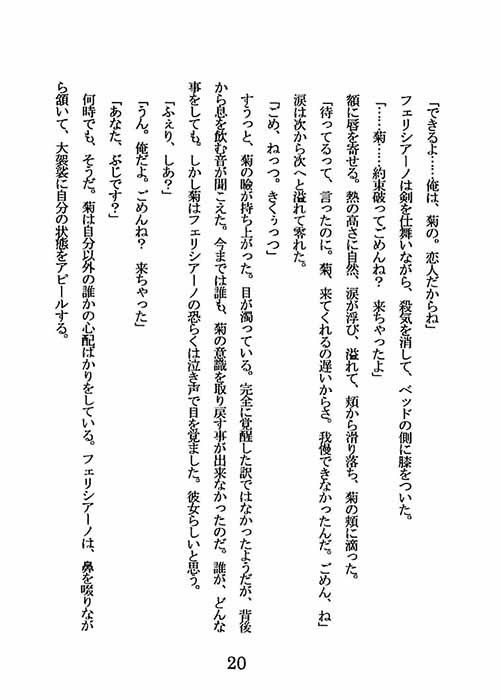 「できるよ……俺は、菊の。恋人だからね」
フェリシアーノは剣を仕舞いながら、殺気を消して、ベッドの側に膝をついた。
「……菊……約束破ってごめんね?　来ちゃったよ」
額に唇を寄せる。熱の高さに自然、涙が浮び、溢れて、頬から滑り落ち、菊の頬に滴った。
「待ってるって、言ったのに。菊、来てくれるの遅いからさ。我慢できなかったんだ。ごめん、ね」
涙は次から次へと溢れて零れた。
「ごめ、ねっつ。きくぅっつ」
すうっと、菊の瞼が持ち上がった。目が濁っている。完全に覚醒した訳ではなかったようだが、背後
から息を飲む音が聞こえた。今までは誰も、菊の意識を取り戻す事が出来なかったのだ。誰が、どんな
事をしても。しかし菊はフェリシアーノの恐らくは泣き声で目を覚ました。彼女らしいと思う。
「ふぇり、しあ?」
「うん。俺だよ。ごめんね?　来ちゃった」
「あなた、ぶじです?」
何時でも、そうだ。菊は自分以外の誰かの心配ばかりをしている。フェリシアーノは、鼻を啜りなが
ら頷いて、大袈裟に自分の状態をアピールする。
20